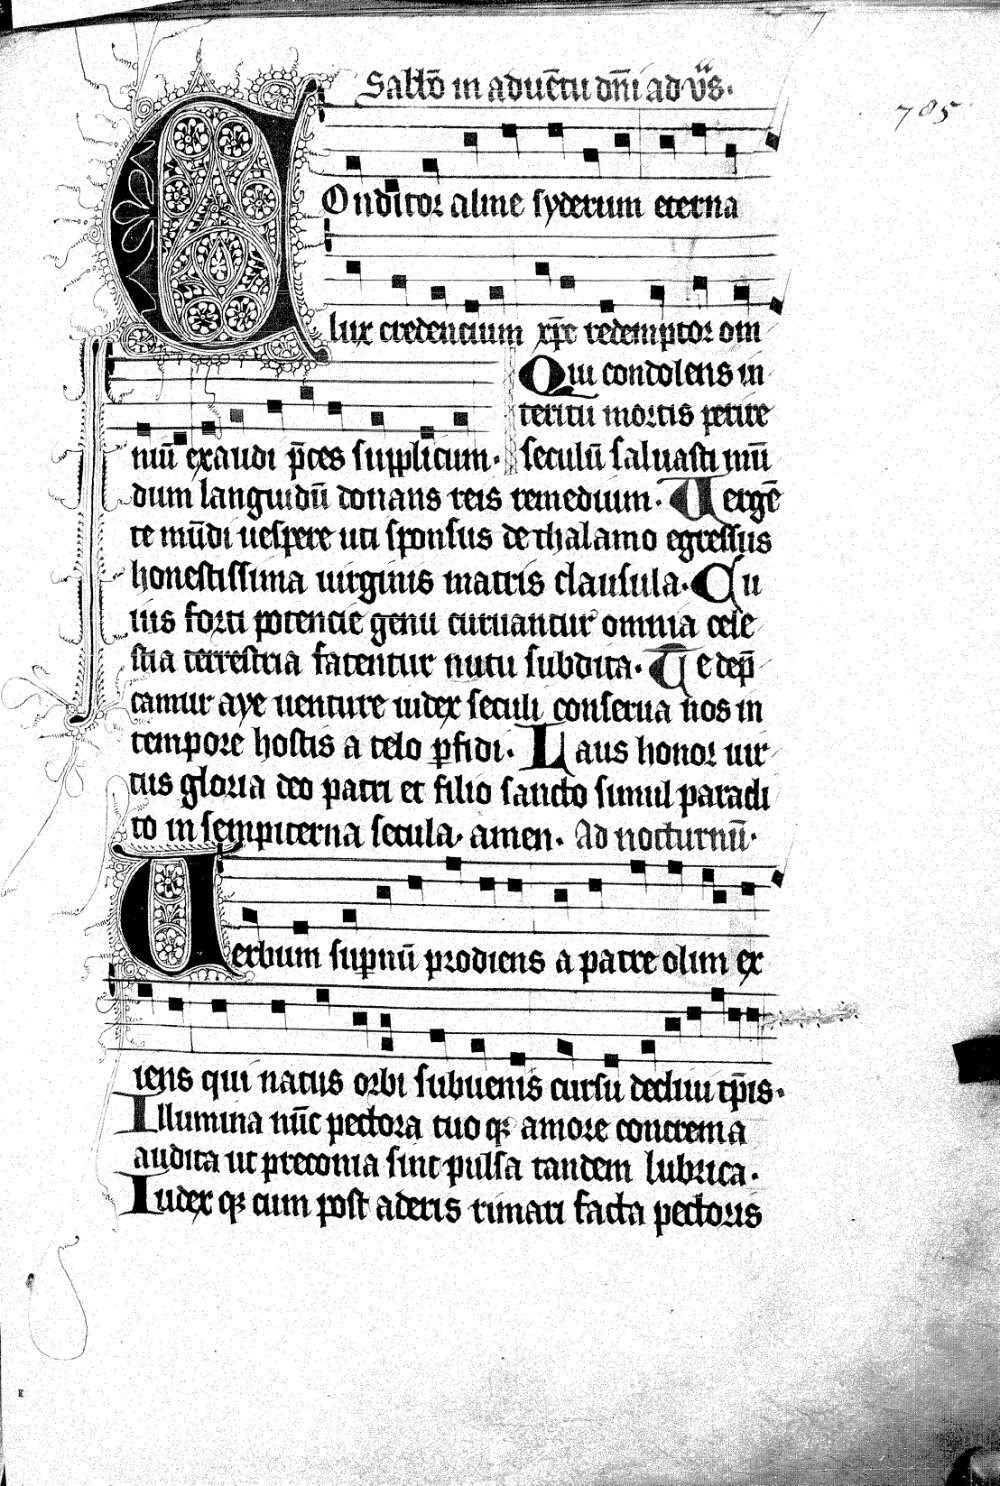 Sabb̄o in aduētu dn̄i ad vs̄.
785
COnditor alme syderum eterna
lux credencium xp̄e redemptor om
niū exaudi p̄ces supplicum.
Qui condolens in
teritu mortis perire
seculū saluasti mū
dum languidū donans reis remedium. Uergē
te mūdi uespere uti sponsus de thalamo egressus
honestissima uirginis matris clausula. Cu
ius forti potencie genu curuantur omnia cele
stia terrestria fatentur nutu subdita. Te dep̄
camur aye uenture iudex seculi conserua nos in
tempore hostis a telo ꝑfidi. Laus honor uir
tus gloria deo patri et filio sancto simul paracli
to in sempiterna secula. amen. Ad nocturnū.
Uerbum supnū prodiens a patre olim ex
iens qui natus orbi subuenis cursu decliui tp̄is.
Illumina nūc pectora tuo qꝫ amore concrema
audita ut preconia sint pulsa tandem lubrica.
Iudex qꝫ cum post aderis rimari facta pectoris